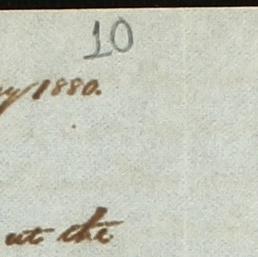 10
y 1880.
at the